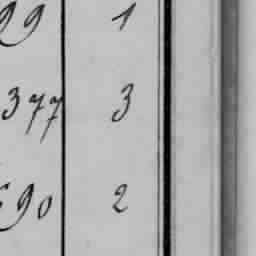 99 1
377 3
690 2